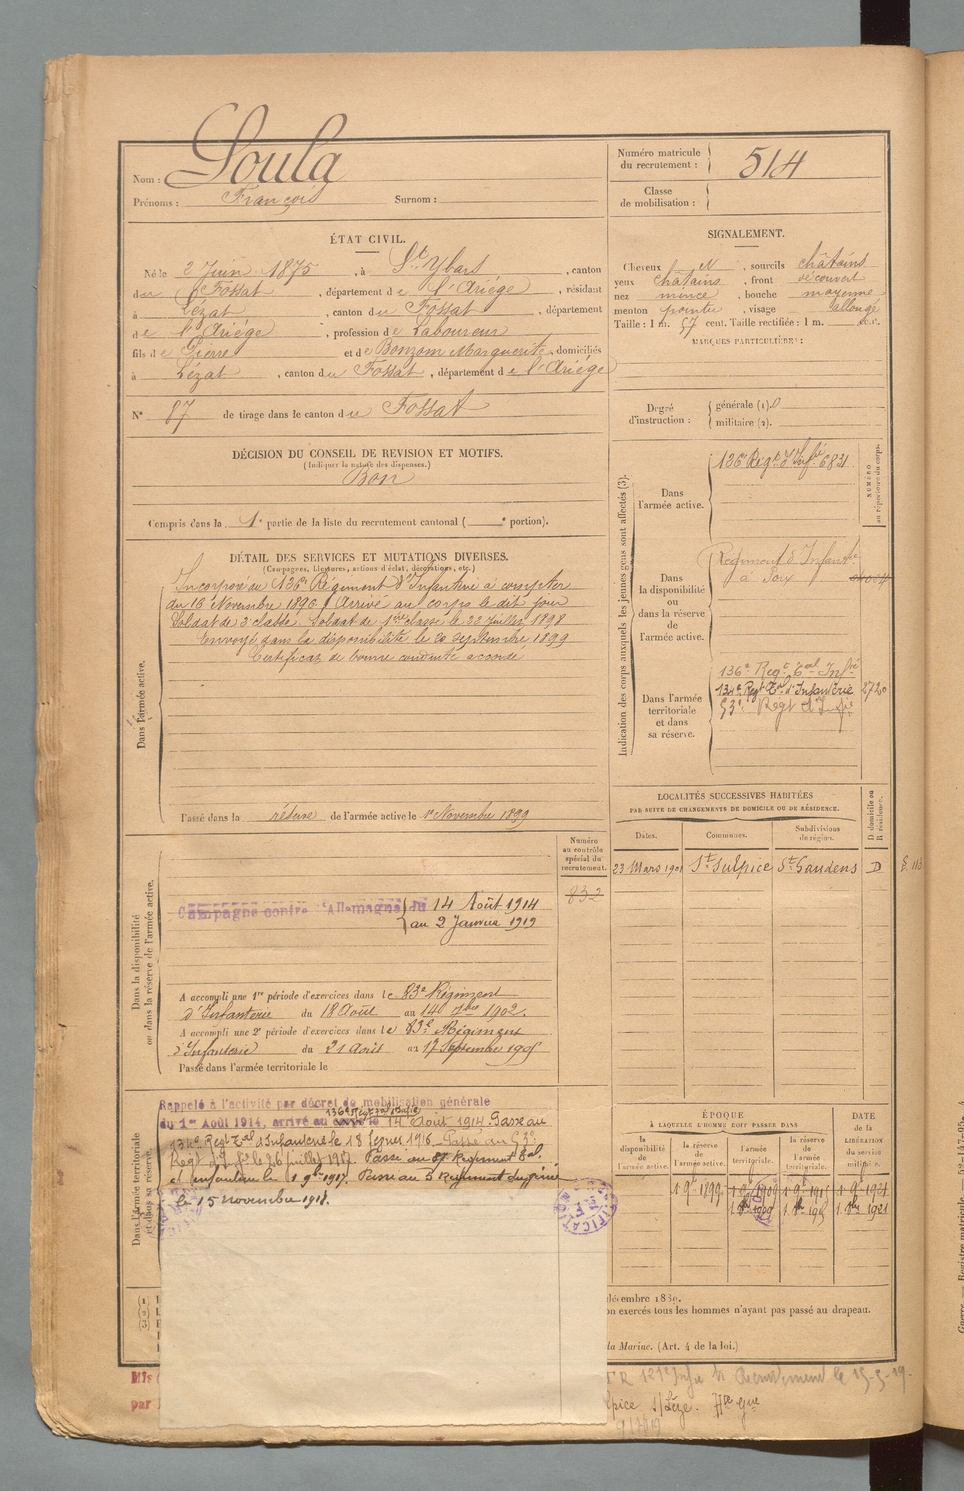 Nom : Soula
Prénoms : François Surnom :
Numéro matricule du recrutement : 514
Classe de mobilisation :
ÉTAT CIVIL.
Né le 2 Juin 1875, à St Ybars, canton
du Fossat, département de l'Ariége, résidant
à Lézat, canton du Fossat, département
de l'Ariége, profession de Laboureur
fils de Pierre et de Bonzom Marguerite, domiciliés
à Lézat, canton du Fossat, département de l'Ariége
N° 87 de tirage dans le canton du Fossat
SIGNALEMENT.
Cheveux et, sourcils châtains
yeux châtains, front découvert
nez mince, bouche moyenne
menton pointu, visage allongé
Taille : 1 m. 57 cent. Taille rectifiée : 1 m. cent.
MARQUES PARTICULIÈRES :
Degré d'instruction : générale (1). 0
militaire (2).
DÉCISION DU CONSEIL DE REVISION ET MOTIFS.
(Indiquer la nature des dispenses.)
Bon
Compris dans la 1e partie de la liste du recrutement cantonal ( e portion).
DÉTAIL DES SERVICES ET MUTATIONS DIVERSES.
(Campagnes, blessures, actions d'éclat, décorations, etc.)
Dans l'armée active.
Incorporé au 136e Régiment d'Infanterie à compter
du 16 Novembre 1896. Arrivé au corps le dit jour
Soldat de 2e classe. Soldat de 1ère classe le 22 Juillet 1898
Envoyé dans la disponibilité le 20 Septembre 1899
Certificat de bonne conduite accordé
Passé dans la réserve de l'armée active le 1er Novembre 1899
Indication des corps auxquels les jeunes gens sont affectés (3).
NUMÉRO au répertoire du corps.
Dans l'armée active.
136e Régt d'Infie 6831
Dans la disponibilité ou dans la réserve de l'armée active.
Régiment d'Infantie
à Foix
Dans l'armée territoriale et dans sa réserve.
136e Régt Tal Infie
134e Regt Tal d'Infanterie 2720
Regt d'Infie
LOCALITÉS SUCCESSIVES HABITÉES
PAR SUITE DE CHANGEMENTS DE DOMICILE OU DE RÉSIDENCE.
Dates. Communes. Subdivisions de région. D domicile ou R résidence.
23 Mars 1901 St Sulpice St Gaudens D
Numéro au contrôle spécial du recrutement.
832
Dans la disponibilité ou dans la réserve de l'armée active.
Campagne contre l'Allemagne du 14 Août 1914
au 2 Janvier 1919
A accompli une 1re période d'exercices dans le 83e Régiment
d'Infanterie du 18 Août au 14 7bre 1902.
A accompli une 2e période d'exercices dans le 83e Régiment
d'Infanterie du 21 Août au 17 Septembre 1905
Passé dans l'armée territoriale le
Dans l'armée territoriale et dans sa réserve.
Rappelé à l'activité par décret de mobilisation générale
136e Régt Tal d'Infie
du 1er Août 1914, arrivé au corps le 14 Août 1914. Passé au
134e Régt Tal d'Infanterie le 18 février 1916. Passé au
Regt d'Ie le 26 juillet 1917. Passé au Régiment Tal
d'infanterie le 1 9bre 1917. Passé au 5 Régiment du génie
le 15 novembre 1918.
ÉPOQUE
À LAQUELLE L'HOMME DOIT PASSER DANS
la disponibilité de l'armée active. la réserve de l'armée active. l'armée territoriale. la réserve de l'armée territoriale.
DATE de la LIBÉRATION du service militaire.
1 9e 1899 1 9e 1909 1 9e 1915 1 9e 1921
décembre 1889.
on exercés tous les hommes n'ayant pas passé au drapeau.
la Marine. (Art. 4 de la loi.)
Mis
par
121e Infie Recrutement le 15-5-19.
lpice s/Lèze. Hte Gne
Guerre. — Registre matricule.